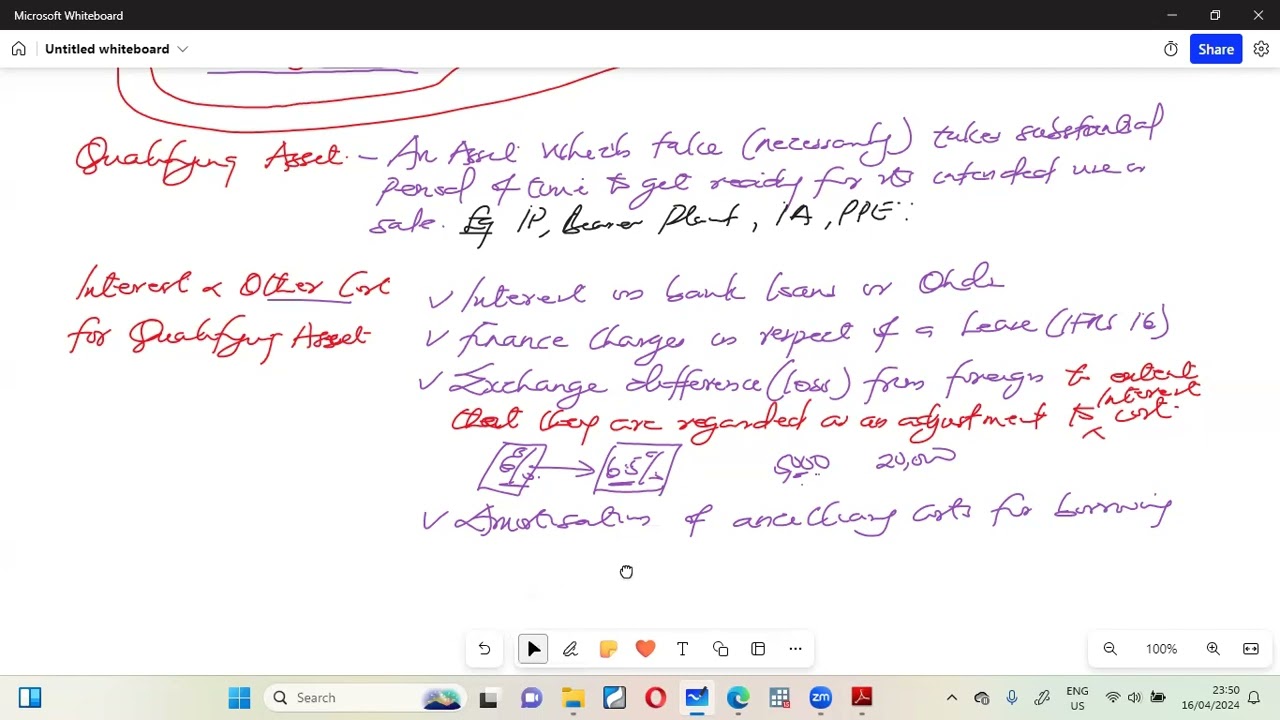 Microsoft Whiteboard
Untitled whiteboard
Share
Qualifying Asset - An Asset which take (necessarily) takes substantial
period of time to get ready for its intended use or
sale. Eg IP, Bearer Plant, IA, PPE
Interest & Other Cost
for Qualifying Asset
✓ Interest on bank loans or
✓ Finance charges in respect of a Lease (IFRS 16)
✓ Exchange difference (loss) from foreign to extent
that they are regarded as an adjustment to interest cost.
6% → 6.5% 20,000
✓ Amortisation of ancillary costs for borrowing
100%
Search
ENG
US
23:50
16/04/2024